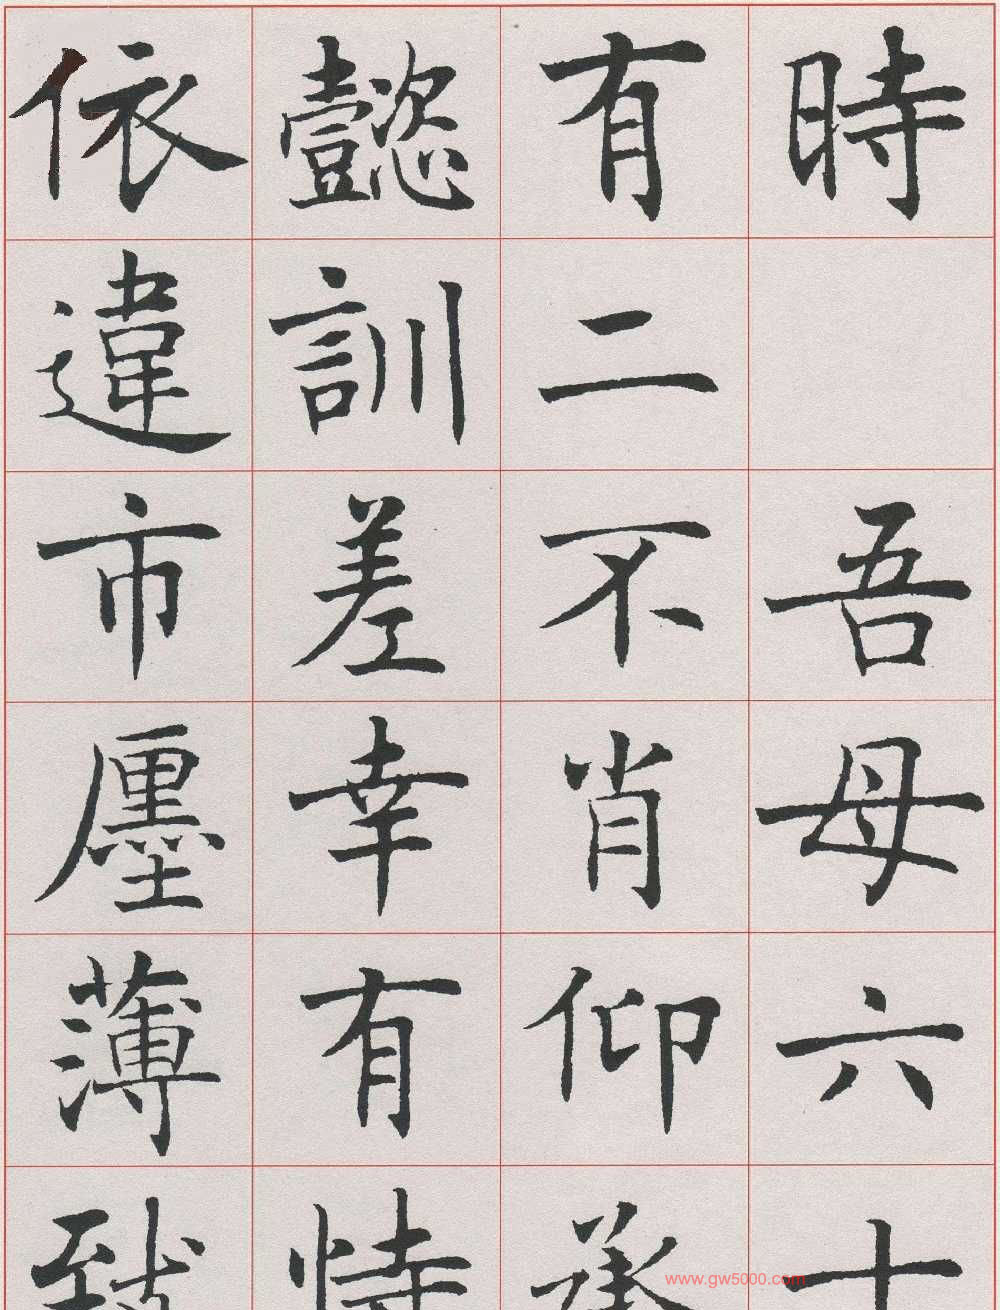 時 吾母六十
有二不肖仰承
懿訓差幸有恃
依違市廛薄
www.gw5000.com